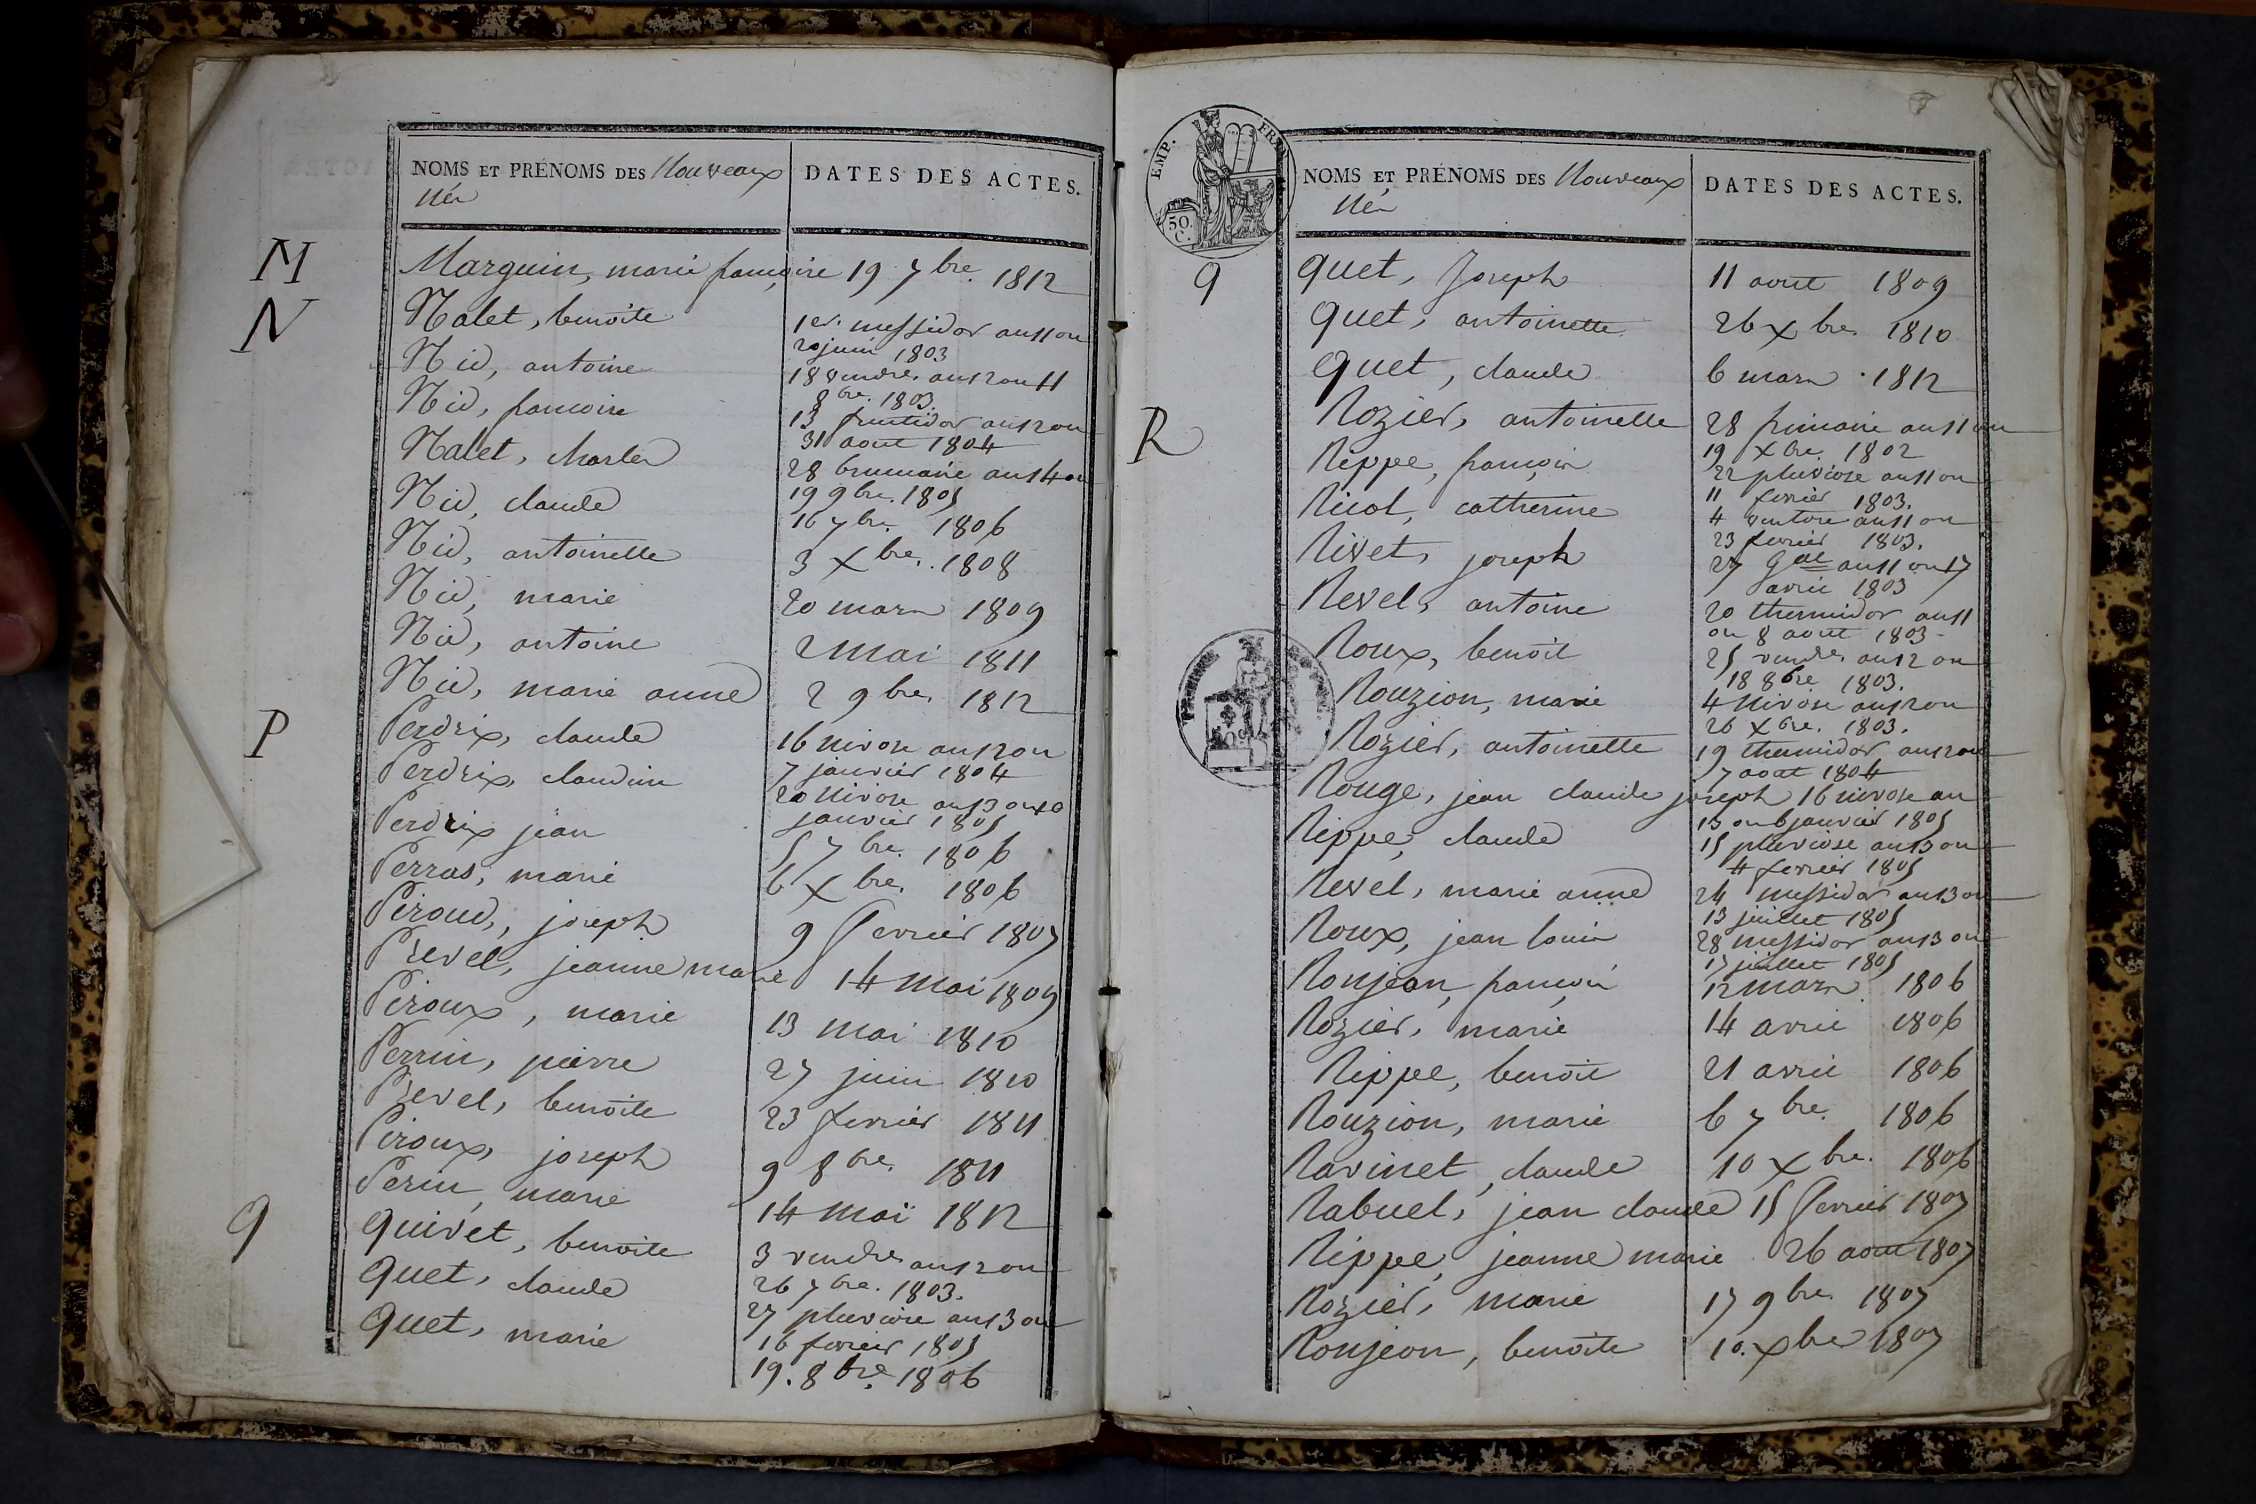 NOMS ET PRÉNOMS DES Nouveaux
Nés
DATES DES ACTES.
M
Marguin, marie françoise 19 7bre. 1812
N
Nalet, benoite 1er. messidor an 11 ou
20 juin 1803
Nid, antoine 18 vendre. an 12 ou 11
8bre. 1803.
Nid, francoise 13 fructidor an 12 ou
31 aout 1804
Nalet, charles 28 brumaire an 14 ou
19 9bre. 1805
Nid, claude 16 7bre. 1806
Nid, antoinette 3 Xbre. 1808
Nid, marie 20 mars 1809
Nid, antoine 2 mai 1811
Nid, marie anne 2 9bre. 1812
P
Perdrix, claude 16 nivose an 12 ou
7 janvier 1804
Perdrix, claudine 20 nivose an 13 ou 10
janvier 1805
Perdrix jean 5 7bre. 1806
Perras, marie 6 Xbre. 1806
Piroud, joseph 9 fevrier 1807
Prevel, jeanne marie 14 mai 1809
Piroux, marie 13 mai 1810
Perrin, pierre 27 juin 1810
Prevel, benoite 23 fevrier 1811
Piroux, joseph 9 8bre. 1811
Perin, marie 14 mai 1812
q
quivet, benoite 3 vendre. an 12 ou
26 7bre. 1803.
quet, claude 27 pluviose an 13 ou
16 fevrier 1805
quet, marie 19. 8bre. 1806
EMP. FR
50.
C.
NOMS ET PRÉNOMS DES Nouveaux
Nés
DATES DES ACTES.
q
quet, Joseph 11 aout 1809
quet, antoinette 26 Xbre. 1810
quet, claude 6 mars 1812
R
Rozier, antoinette 28 frimaire an 11 ou
19 Xbre. 1802
Rippe, françois 22 pluviose an 11 ou
11 fevrier 1803.
Ricol, catherine 4 ventose an 11 ou
23 fevrier 1803.
Rivet, joseph 27 gal an 11 ou 17
avril 1803
Revel, antoine 20 thermidor an 11
ou 8 aout 1803
Roux, benoit 25 vendre. an 12 ou
18 8bre 1803.
Rouzion, marie 4 nivose an 12 ou
26 Xbre. 1803.
Rozier, antoinette 19 thermidor an 12 ou
7 aout 1804
Rouge, jean claude joseph 16 nivose an
13 ou 6 janvier 1805
Rippe, claude 15 pluviose an 13 ou
4 fevrier 1805
Revel, marie anne 24 messidor an 13 ou
13 juillet 1805
Roux, jean louis 28 messidor an 13 ou
17 juillet 1805
Ronjeon, françois 12 mars 1806
Rozier, marie 14 avril 1806
Rippe, benoit 21 avril 1806
Rouzion, marie 6 7bre. 1806
Ravinet, claude 10 Xbre. 1806
Rabuel, jean claude 15 fevrier 1807
Rippe, jeanne marie 26 aout 1807
Rozier, marie 17 9bre 1807
Ronjeon, benoite 10. Xbre 1807